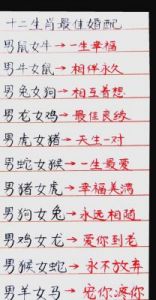 十二生肖最佳婚配
男鼠女牛→一生幸福
男牛女鼠→相伴永久
男兔女狗→相互着想
男龙女鸡→最佳良缘
男虎女猪→天生一对
男蛇女猴→一生最爱
男猪女虎→幸福美满
男狗女兔→永远相随
男鸡女龙→爱你到老
男猴女蛇→永不放弃
男羊女马→宠你疼你